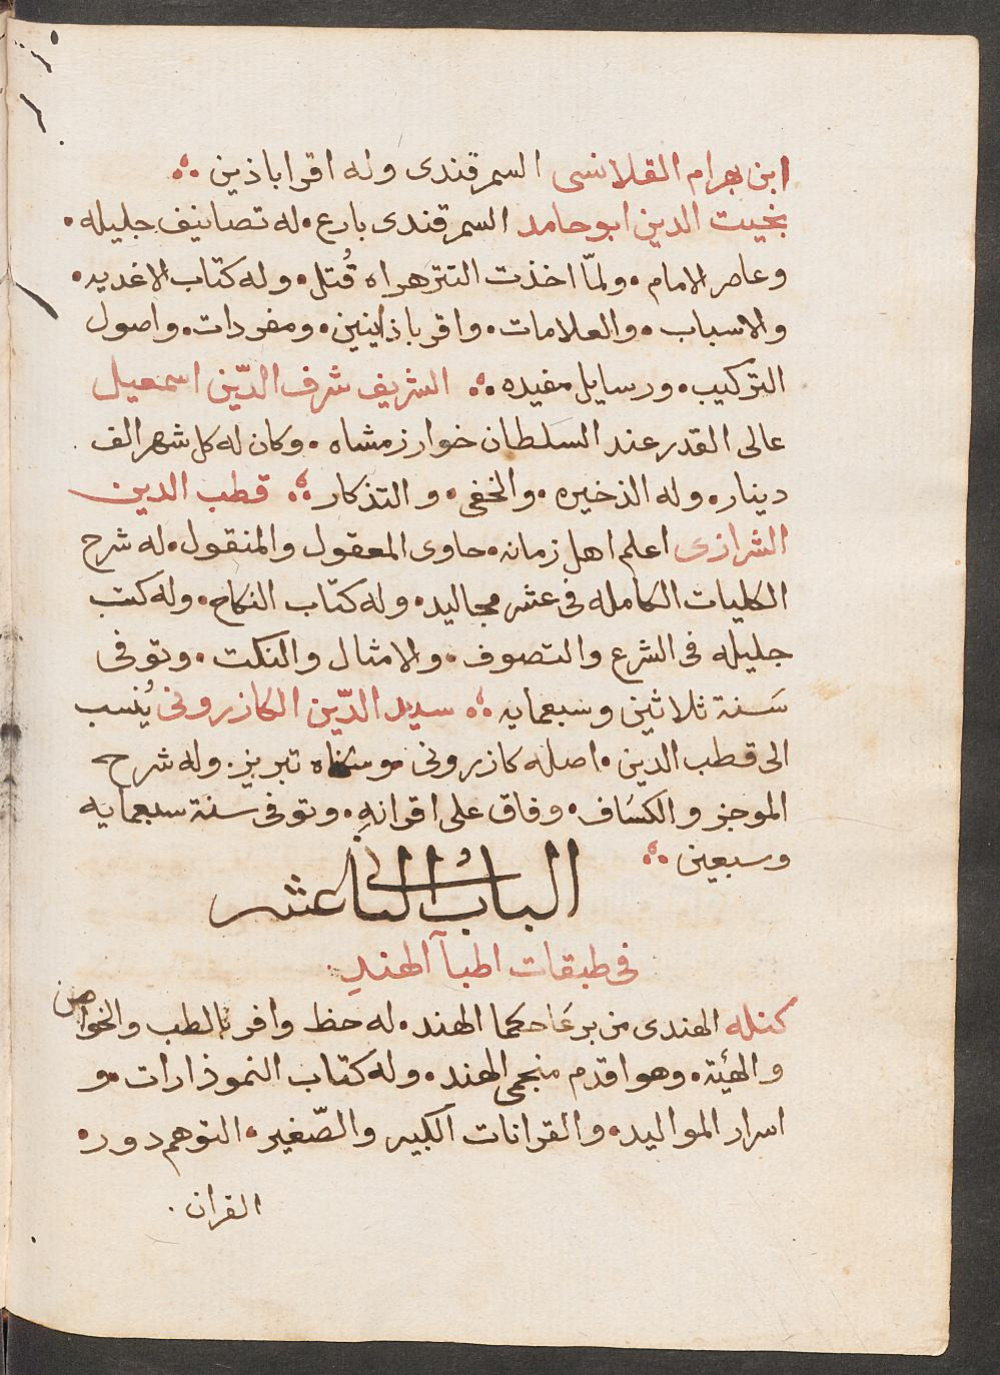 ابن بهرام القلانسى السمرقندى وله اقراباذين
نجيب الدين ابو حامد السمرقندى بارع. له تصانيف جليله.
وعاصر الامام. ولمّا اخذت التتر هراه قُتل. وله كتاب الاغديه.
والاسباب. والعلامات. واقرباذاينين. ومفردات. واصول
التركيب. ورسايل مفيده الشريف شرف الدّين اسمعيل
عالى القدر عند السلطان خوارزمشاه. وكان له كل شهر الف
دينار. وله الذخيره. والخفى. والتذكار قطب الدين
الشرازى اعلم اهل زمانه. حاوى المعقول والمنقول. له شرح
الكليات الكامله فى عشر مجاليد. وله كتاب النكاح. وله كتب
جليله فى الشرع والتصوف. والامثال والنكت. وتوفى
سَنة ثلاثين وسبعمايه سديد الدّين الكازرونى يُنسب
الى قطب الدين. اصله كازرونى تبريز. وله شرح
الموجز والكسَاف. وفاق على اقرانهِ. وتوفى سنة سبعمايه
وسبعين
البابُ عشر
فى طبقات اطبآ الهندِ.
كنله الهندى من حكما الهند. له حظ وافر بالطب والخواص
والهيئة. وهو اقدم منجمى الهند. وله كتاب النموذارات. و
اسرار المواليد. والقرانات الكبير والصّغير. التوهم دوره
القران.